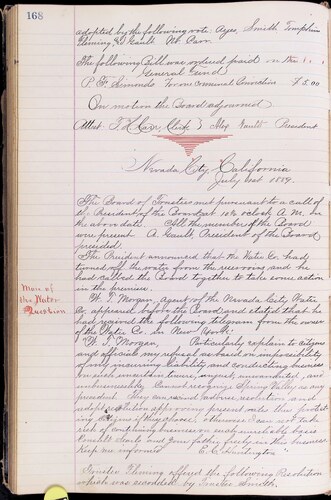 168
adopted by the following vote. Ayes, Smith Tompkins
Fleming & Gault. No. Carr.
The following Bill was ordered paid in the
General Fund
P. H. Simonds For one $5.00
On motion the Board adjourned
Attest T. H. Carr, Clerk } Alex Gault President
Nevada City, California
July 1889.
The Board of Trustees met pursuant to a call of
the President of the Board at 10 1/2 o'clock A. M. on
the above date. All the members of the Board
were present A. Gault, President of the Board
presided.
The President announced that the Water Co. had
turned off the water from the reservoirs and he
had called the Board together to take some action
in the premises.
More of
the Water
Question
W. T. Morgan, Agent of the Nevada City Water
Co. appeared before the Board and stated that he
had received the following telegram from the owner
of the Water Co. in New York:
"W. T. Morgan, Particularly explain to citizens
and officials my refusal as based on impossibility
of any incurring liability and conducting business
on such uncertain tenure, unwarranted, and
unbusinesslike Cannot recognize Spring Valley as any
president They can rescind adverse resolution and
adopt resolution approving present rules thus protect
citizens if they choose Otherwise I can not take
risk of continuing business on such unreliable basis
Consult Searls and your father freely in this business
Keep me informed E. C. Huntington"
Trustee Fleming offered the following Resolution
which was seconded by Trustee Smith.